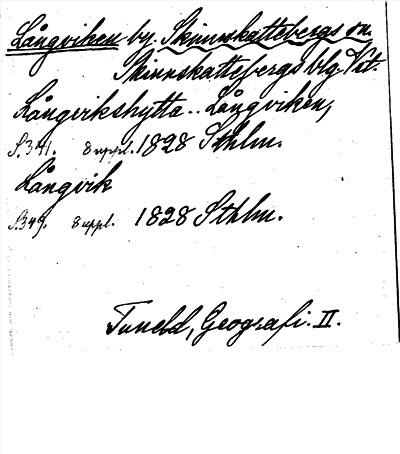 Långviken by. Skinnskattebergs sn.
Skinnskattebergs blg. Vst.
Långvikshytta .. Långviken,
S. 341. 8 uppl. 1828 Sthlm.
Långvik
S. 349. 8 uppl. 1828 Sthlm.
Tuneld, Geografi. II.